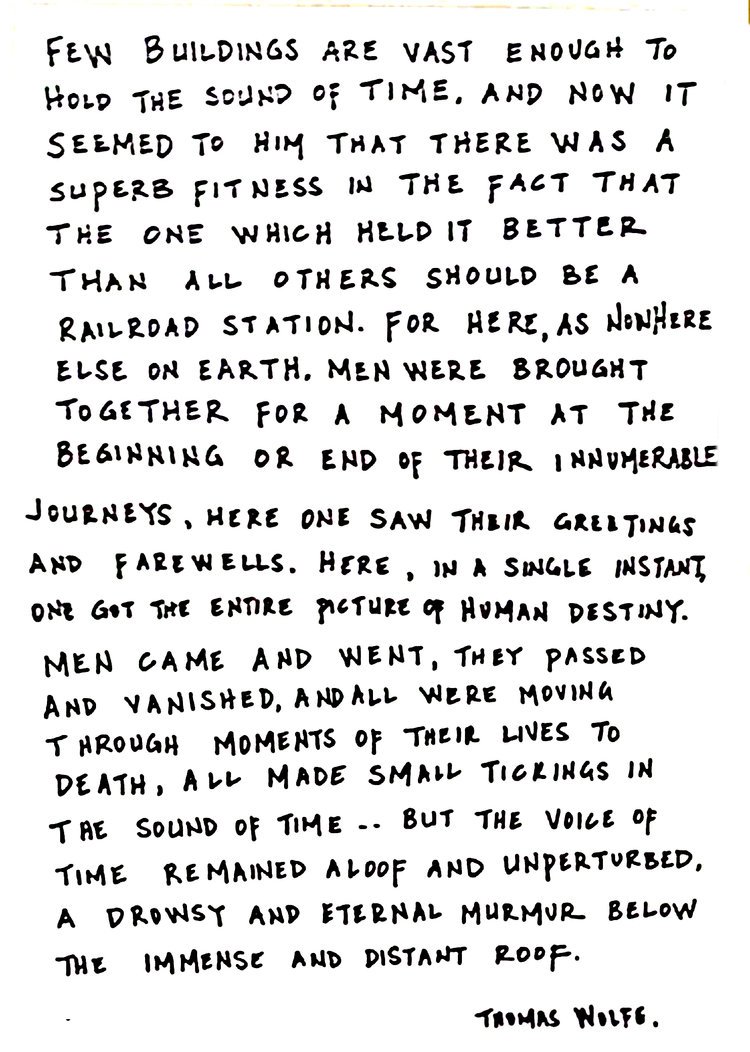 FEW BUILDINGS ARE VAST ENOUGH TO
HOLD THE SOUND OF TIME. AND NOW IT
SEEMED TO HIM THAT THERE WAS A
SUPERB FITNESS IN THE FACT THAT
THE ONE WHICH HELD IT BETTER
THAN ALL OTHERS SHOULD BE A
RAILROAD STATION. FOR HERE, AS NOWHERE
ELSE ON EARTH. MEN WERE BROUGHT
TOGETHER FOR A MOMENT AT THE
BEGINNING OR END OF THEIR INNUMERABLE
JOURNEYS, HERE ONE SAW THEIR GREETINGS
AND FAREWELLS. HERE, IN A SINGLE INSTANT,
ONE GOT THE ENTIRE PICTURE OF HUMAN DESTINY.
MEN CAME AND WENT, THEY PASSED
AND VANISHED, AND ALL WERE MOVING
THROUGH MOMENTS OF THEIR LIVES TO
DEATH, ALL MADE SMALL TICKINGS IN
THE SOUND OF TIME -- BUT THE VOICE OF
TIME REMAINED ALOOF AND UNPERTURBED,
A DROWSY AND ETERNAL MURMUR BELOW
THE IMMENSE AND DISTANT ROOF.
THOMAS WOLFE.